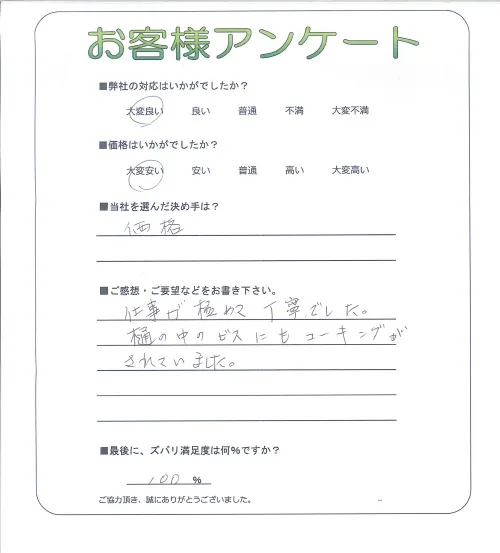 お客様アンケート
■弊社の対応はいかがでしたか？
大変良い 良い 普通 不満 大変不満
■価格はいかがでしたか？
大変安い 安い 普通 高い 大変高い
■当社を選んだ決め手は？
価格
■ご感想・ご要望などをお書き下さい。
仕事が極めて丁寧でした。
樋の中のビスにもコーキングが
されていました。
■最後に、ズバリ満足度は何%ですか？
100 %
ご協力頂き、誠にありがとうございました。